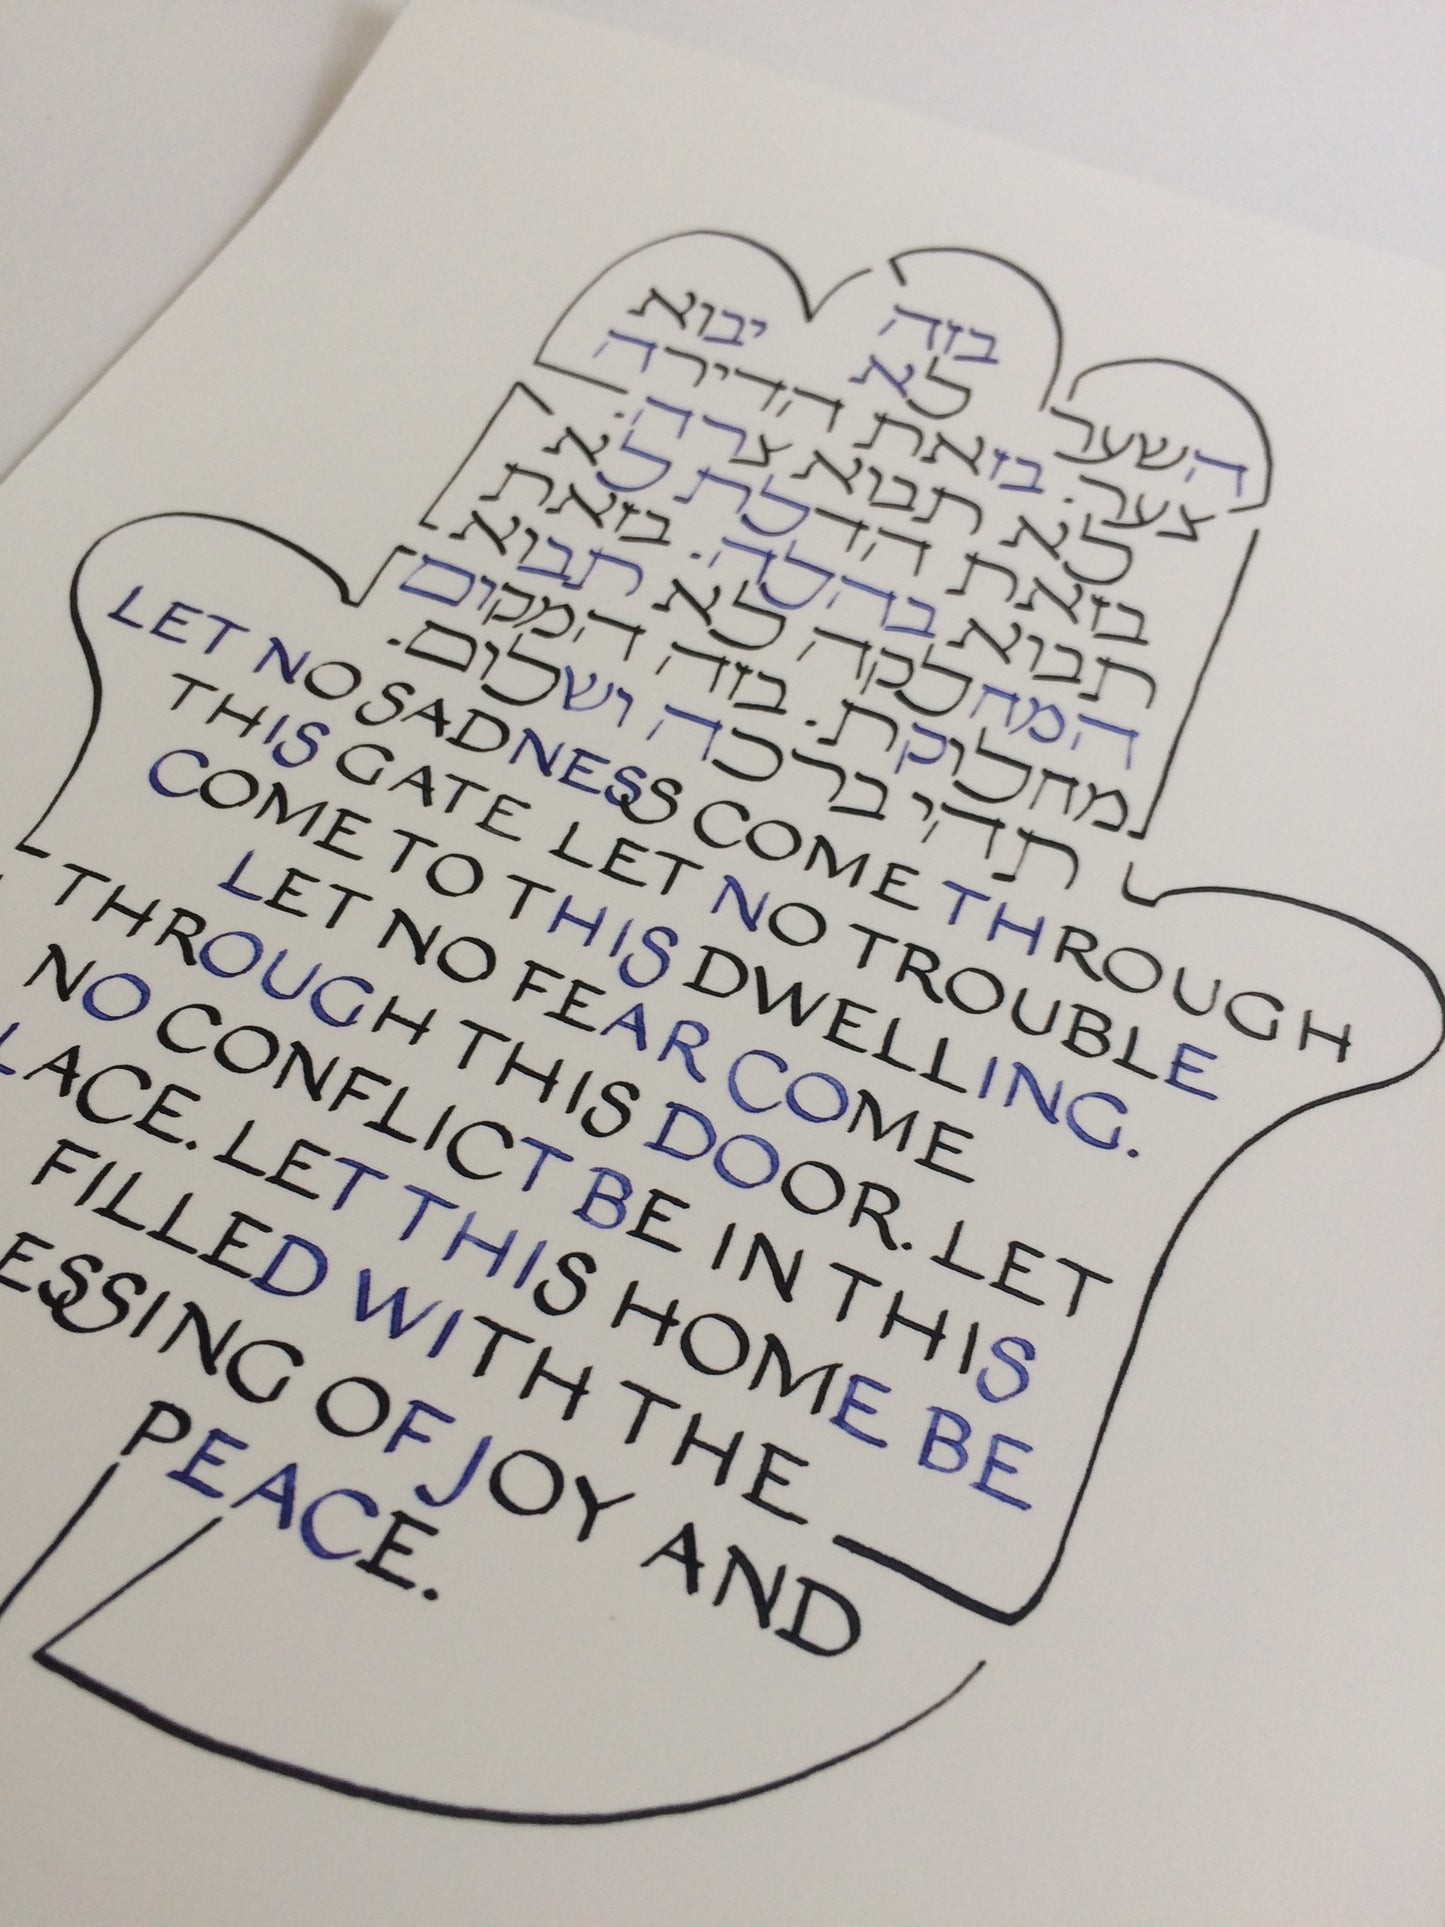 בזה
השער לא יבוא
צער. בזאת הדירה
לא תבוא צרה.
בזאת הדלת לא
תבוא בהלה. בזאת
המחלקה לא תבוא
מחלוקת. בזה המקום
תהי ברכה ושלום.
LET NO SADNESS COME THROUGH
THIS GATE LET NO TROUBLE
COME TO THIS DWELLING.
LET NO FEAR COME
THROUGH THIS DOOR. LET
NO CONFLICT BE IN THIS
LACE. LET THIS HOME BE
FILLED WITH THE
ESSING OF JOY AND
PEACE.